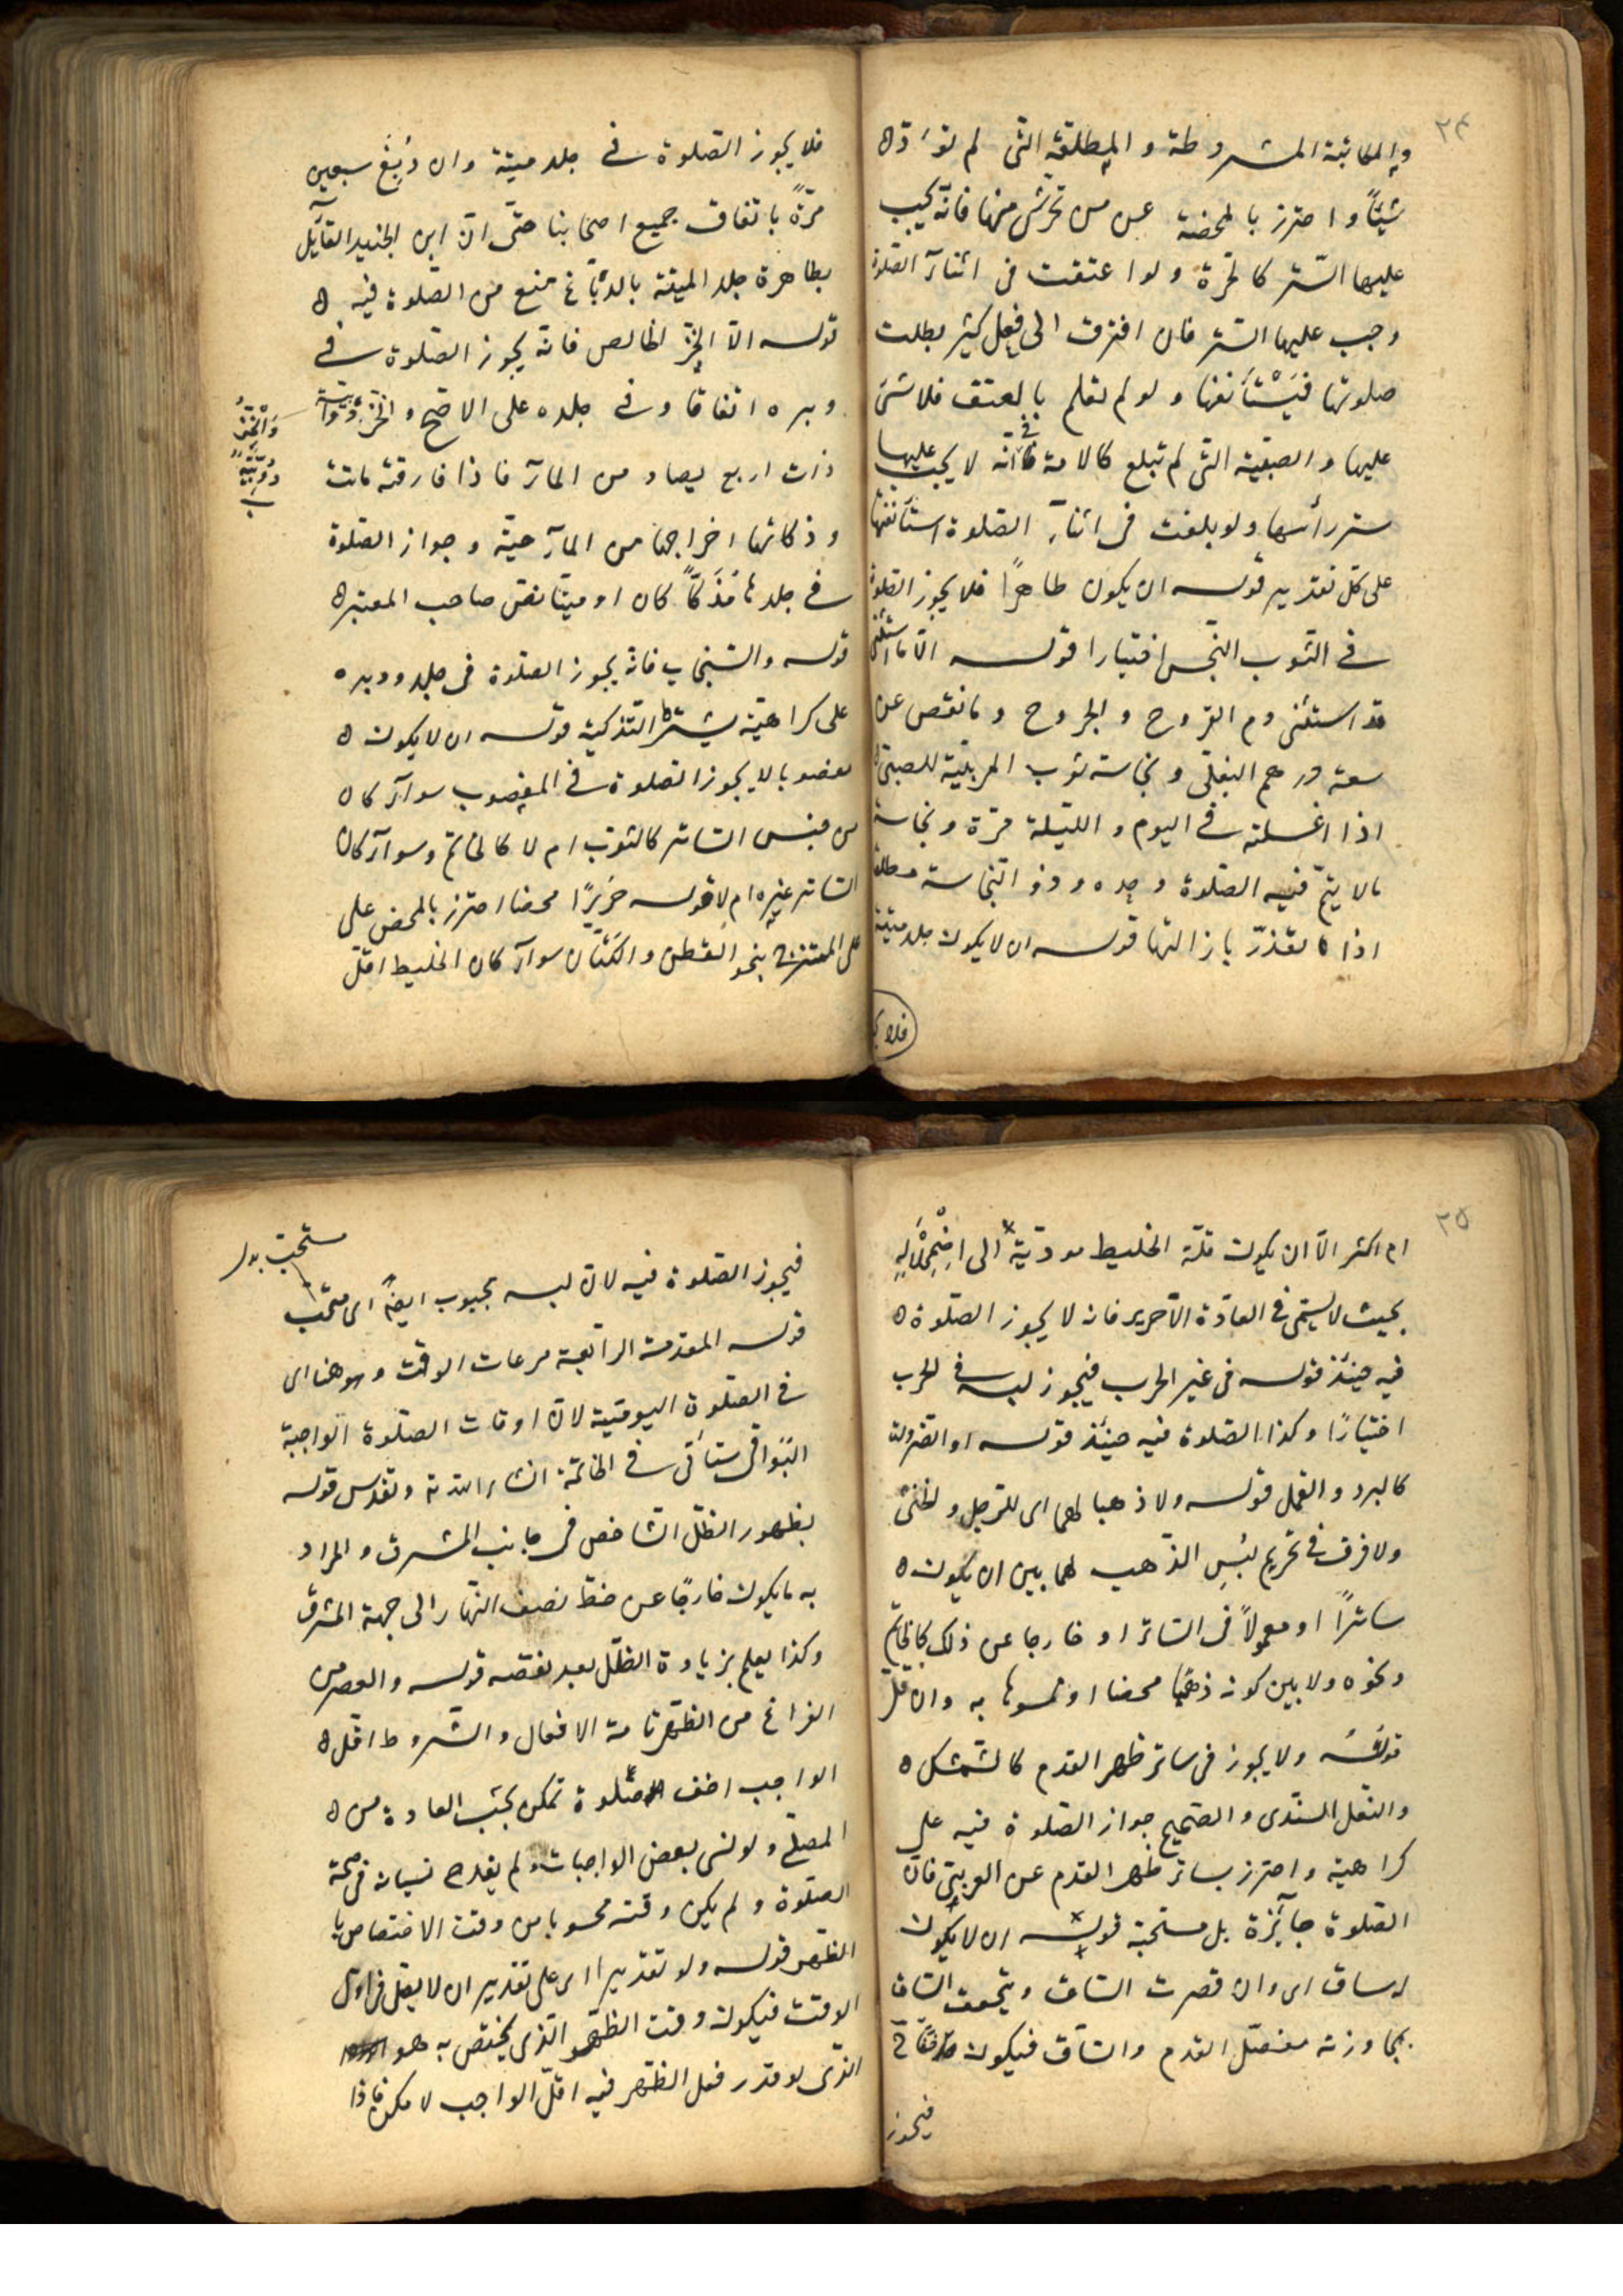 ٢٤
والمكاتبة المشروطة والمطلقة التى لم تؤدّ
شيئًا واحترز بالمحضة عن من تحرّر منها فانّه يجب
عليها السّتر كالحرّة ولو اعتقت فى اثنآء الصّلوة
وجب عليها السّتر فان افتقرت الى فعل كثير بطلت
صلوتها فيستأنفها ولو لم تعلم بالعتق فلا شئ
عليها والصبيّة التى لم تبلغ كالامة فى انّه لا يجب عليها
ستر رأسها ولو بلغت فى اثنآء الصّلوة استأنفتها
على كلّ تقدير قوله ان يكون طاهرًا فلا يجوز الصّلوة
فى الثوب النّجس اختيارا قوله الّا ما استثنى
قد استثنى دم القروح والجروح وما نقص عن
سعة درهم البغلى ونجاسة ثوب المربّية للصبىّ
اذا غسلته فى اليوم والليّلة مرّة ونجاسة
ما لا يتمّ فيه الصّلوة وحده وذو النّجاسة مطلقا
اذا تعذّر بازالتها قوله ان لا يكون جلد ميتة
فلا يجوز
فلا يجوز الصّلوة فى جلد ميتة وان دُبِغَ سبعين
مرّةً باتفاق جميع اصحابنا حتّى انّ ابن الجنيد القآئل
بطاهرة جلد الميتة بالدّباغ منع من الصّلوة فيه
قوله الّا الخزّ الخالص فانّه يجوز الصّلوة فى
وبره اتفاقا وفى جلده على الاصحّ والخزّ دويبّة
وَالْخَزُّ
دُوَيْبَّةٌ
ذات اربع يصاد من المآء فاذا فارقته ماتت
وذكاتها اخراجها من المآء حيّة وجواز الصّلوة
فى جلدها مُذَكًّا كان او ميّتا نقل صاحب المعتبر
قوله والسّنجاب فانّه يجوز الصّلوة فى جلده ووبره
على كراهيّة يشترط التّذكية قوله ان لا يكون
مغصوبا لا يجوز الصّلوة فى المغصوب سوآء كان
من جنس السّاتر كالثوب ام لا كالخاتم وسوآء كان
السّاتر غيره ام لا قوله حَرِيرًا محضا احترز بالمحض على
على الممتزج بنحو القطن والكتّان سوآء كان الخليط اقلّ
٢٥
ام اكثر الّا ان يكون قلّة الخليط مودّيّة الى اضْمِحْلَالِهِ
بحيث لا يسمّى فى العادّة الّا حرير فانّه لا يجوز الصّلوة
فيه حينئذ قوله فى غير الحرب فيجوز لبسه فى الحرب
اختيارًا وكذا الصّلوة فيه حينئذ قوله او الضّرورة
كالبرد والقمل قوله ولا ذهبا لهما اى للرّجل والخنثى
ولا فرق فى تحريم لبس الذّهب لهما بين ان يكون
ساترًا او معمولاً فى السّاتر او خارجا عن ذلك كالخاتم
ونحوه ولا بين كونه ذهبًا محضا او مموّها به وان قلّ
قولُهُ ولا يجوز فى ساتر ظهر القدم كالشّمشك
والنّعل السّندى والصّحيح جواز الصّلوة فيه على
كراهية واحترز بساتر ظهر القدم عن العربىّ فانّ
الصّلوة جآئزة بل مستحبّة قوله ان لا يكون
له ساق اى وان قصرت السّاق ويتحقّق السّاق
بمجاوزته مفصل القدم والسّاق فيكون
فيجوز
فيجوز الصّلوة فيه لانّ لبسه بجبوب ايضًا اى مستحبّ
مستحبّ بدل
قوله المقدمة الرّابعة مرعات الوقت وهو هنا اى
فى الصّلوة اليوميّة لانّ اوقات الصّلوة الواجبة
البواقى ستأتى فى الخاتمة انشاء الله تع وتقدس قوله
بظهور الظّلّ الشّاخص فى جانب المشرق والمراد
به ما يكون خارجًا عن خطّ نصف النّهار الى جهة المشرق
وكذا يعلم بزيادة الظّلّ بعد نقصه قوله والعصر من
الفراغ من الظّهر تامة الافعال والشّروط اقلّ
الواجب اخف صّلوة تمكن بحسب العادة من
المصلّى ولو نسى بعض الواجبات ولم يقدح نسيانه فى صحّة
الصّلوة ولم يكن وقته محسوبا من وقت الاختصاص يا
الظّهر قوله ولو تقديرا اى على تقدير ان لا يصلى فى اوّل
الوقت فيكون وقت الظّهر الّذى يختصّ به هو
الّذى لو قدر فعل الظّهر فيه اقلّ الواجب لامكن فاذا